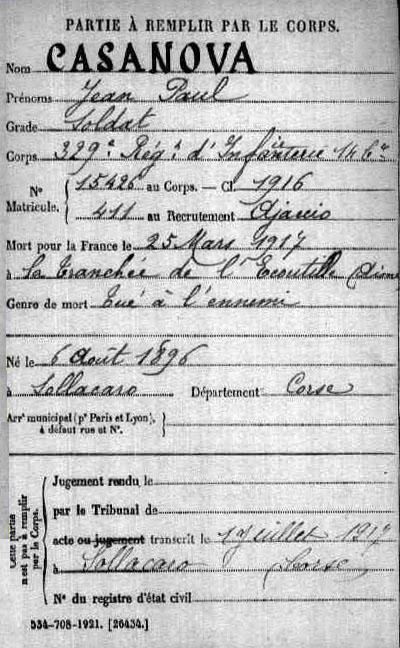 PARTIE À REMPLIR PAR LE CORPS.
Nom CASANOVA
Prénoms Jean Paul
Grade Soldat
Corps 329e Régt d'Infanterie 14 Cie
No 15426 au Corps. — Cl. 1916
Matricule. 411 au Recrutement Ajaccio
Mort pour la France le 25 Mars 1917
à la tranchée de l'Ecoutille (Aisne
Genre de mort Tué à l'ennemi
Né le 6 Août 1896
à Sollacaro Département Corse
Arrt municipal (pr Paris et Lyon),
à défaut rue et No.
Cette partie
n'est pas à remplir
par le Corps.
Jugement rendu le
par le Tribunal de
acte ou jugement transcrit le 17 Juillet 1917
à Sollacaro Corse
No du registre d'état civil
534-708-1921. [26434.]